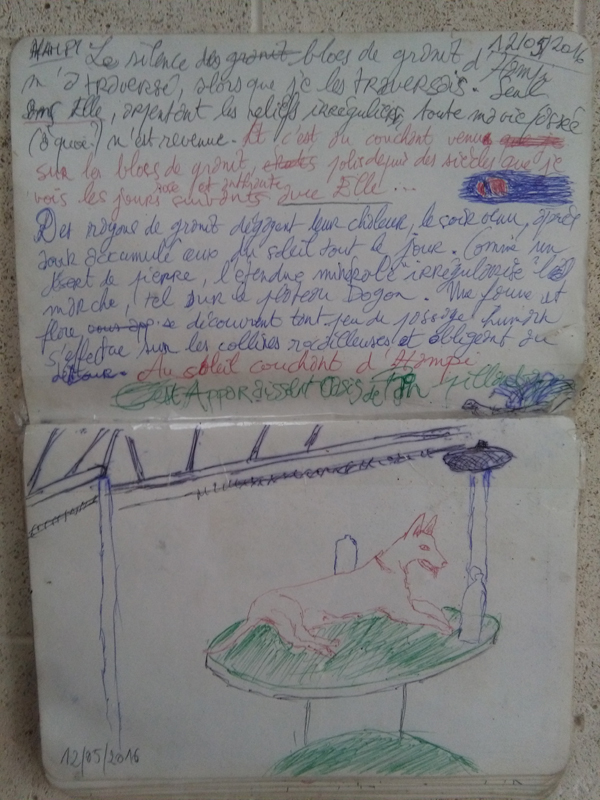 HAMPI Le silence des granit blocs de granit d' 12/05/2016
m'a traversé, alors que je les traversais. Seul
Elle, arpentant les reliefs irréguliers, toute ma vie passée
(à quoi?) m'est revenue. Et c'est au couchant venu
sur les blocs de granit, polis depuis des siècles que je
vois les jours suivants avec Elle ...
Des rayons de granit dégagent leur chaleur, le soir venu, après
avoir accumulé du soleil tout le jour. Comme un
désert de pierre, l'étendue minérale irrégularise la
marche, tel sur le plateau Dogon. Une faune et
flore se découvrent tant peu de passage humain
s'effectue sur les collines rocailleuses et obligent au
détour. Au soleil couchant d'Hampi
Apparaissent Oasis de
12/05/2016